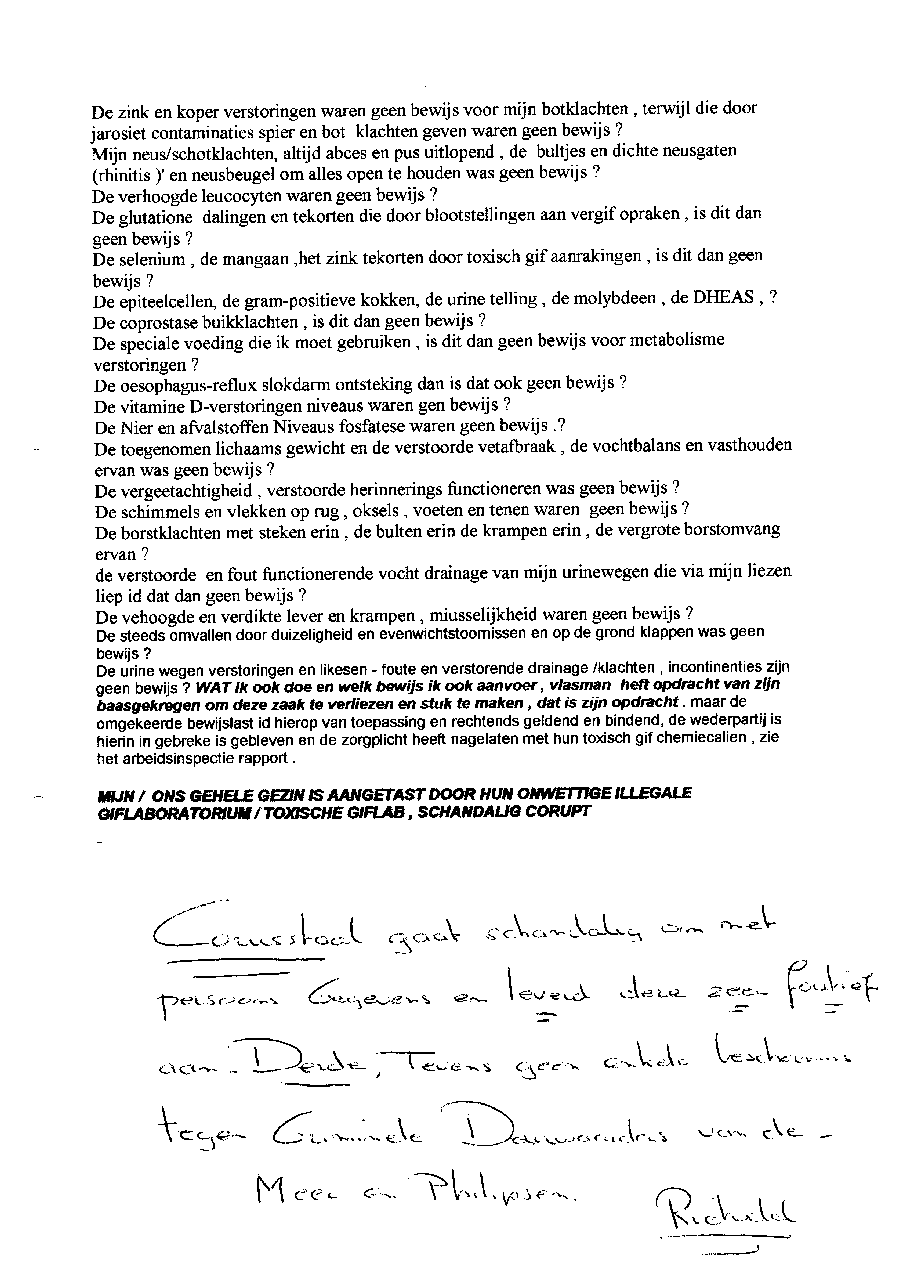 De zink en koper verstoringen waren geen bewijs voor mijn botklachten , terwijl die door
jarosiet contaminaties spier en bot klachten geven waren geen bewijs ?
Mijn neus/schotklachten, altijd abces en pus uitlopend , de bultjes en dichte neusgaten
(rhinitis )' en neusbeugel om alles open te houden was geen bewijs ?
De verhoogde leucocyten waren geen bewijs ?
De glutatione dalingen en tekorten die door blootstellingen aan vergif opraken , is dit dan
geen bewijs ?
De selenium , de mangaan ,het zink tekorten door toxisch gif aanrakingen , is dit dan geen
bewijs ?
De epiteelcellen, de gram-positieve kokken, de urine telling , de molybdeen , de DHEAS , ?
De coprostase buikklachten , is dit dan geen bewijs ?
De speciale voeding die ik moet gebruiken , is dit dan geen bewijs voor metabolisme
verstoringen ?
De oesophagus-reflux slokdarm ontsteking dan is dat ook geen bewijs ?
De vitamine D-verstoringen niveaus waren gen bewijs ?
De Nier en afvalstoffen Niveaus fosfatese waren geen bewijs .?
De toegenomen lichaams gewicht en de verstoorde vetafbraak , de vochtbalans en vasthouden
ervan was geen bewijs ?
De vergeetachtigheid , verstoorde herinnerings functioneren was geen bewijs ?
De schimmels en vlekken op rug , oksels , voeten en tenen waren geen bewijs ?
De borstklachten met steken erin , de bulten erin de krampen erin , de vergrote borstomvang
ervan ?
de verstoorde en fout functionerende vocht drainage van mijn urinewegen die via mijn liezen
liep id dat dan geen bewijs ?
De vehoogde en verdikte lever en krampen , miusselijkheid waren geen bewijs ?
De steeds omvallen door duizeligheid en evenwichtstoornissen en op de grond klappen was geen
bewijs ?
De urine wegen verstoringen en likesen - foute en verstorende drainage /klachten , incontinenties zijn
geen bewijs ? WAT ik ook doe en welk bewijs ik ook aanvoer , vlasman heft opdracht van zijn
baasgekregen om deze zaak te verliezen en stuk te maken , dat is zijn opdracht . maar de
omgekeerde bewijslast id hierop van toepassing en rechtends geldend en bindend, de wederpartij is
hierin in gebreke is gebleven en de zorgplicht heeft nagelaten met hun toxisch gif chemiecalien , zie
het arbeidsinspectie rapport .
MIJN / ONS GEHELE GEZIN IS AANGETAST DOOR HUN ONWETTIGE ILLEGALE
GIFLABORATORIUM / TOXISCHE GIFLAB , SCHANDALIG CORUPT
Corusstaal gaat schandalig om met
persoons Gegevens en leverd deze zeer foutief
aan. Derde, Tevens geen enkele bescherming
tegen Criminele van de
Meer en Philipsen.